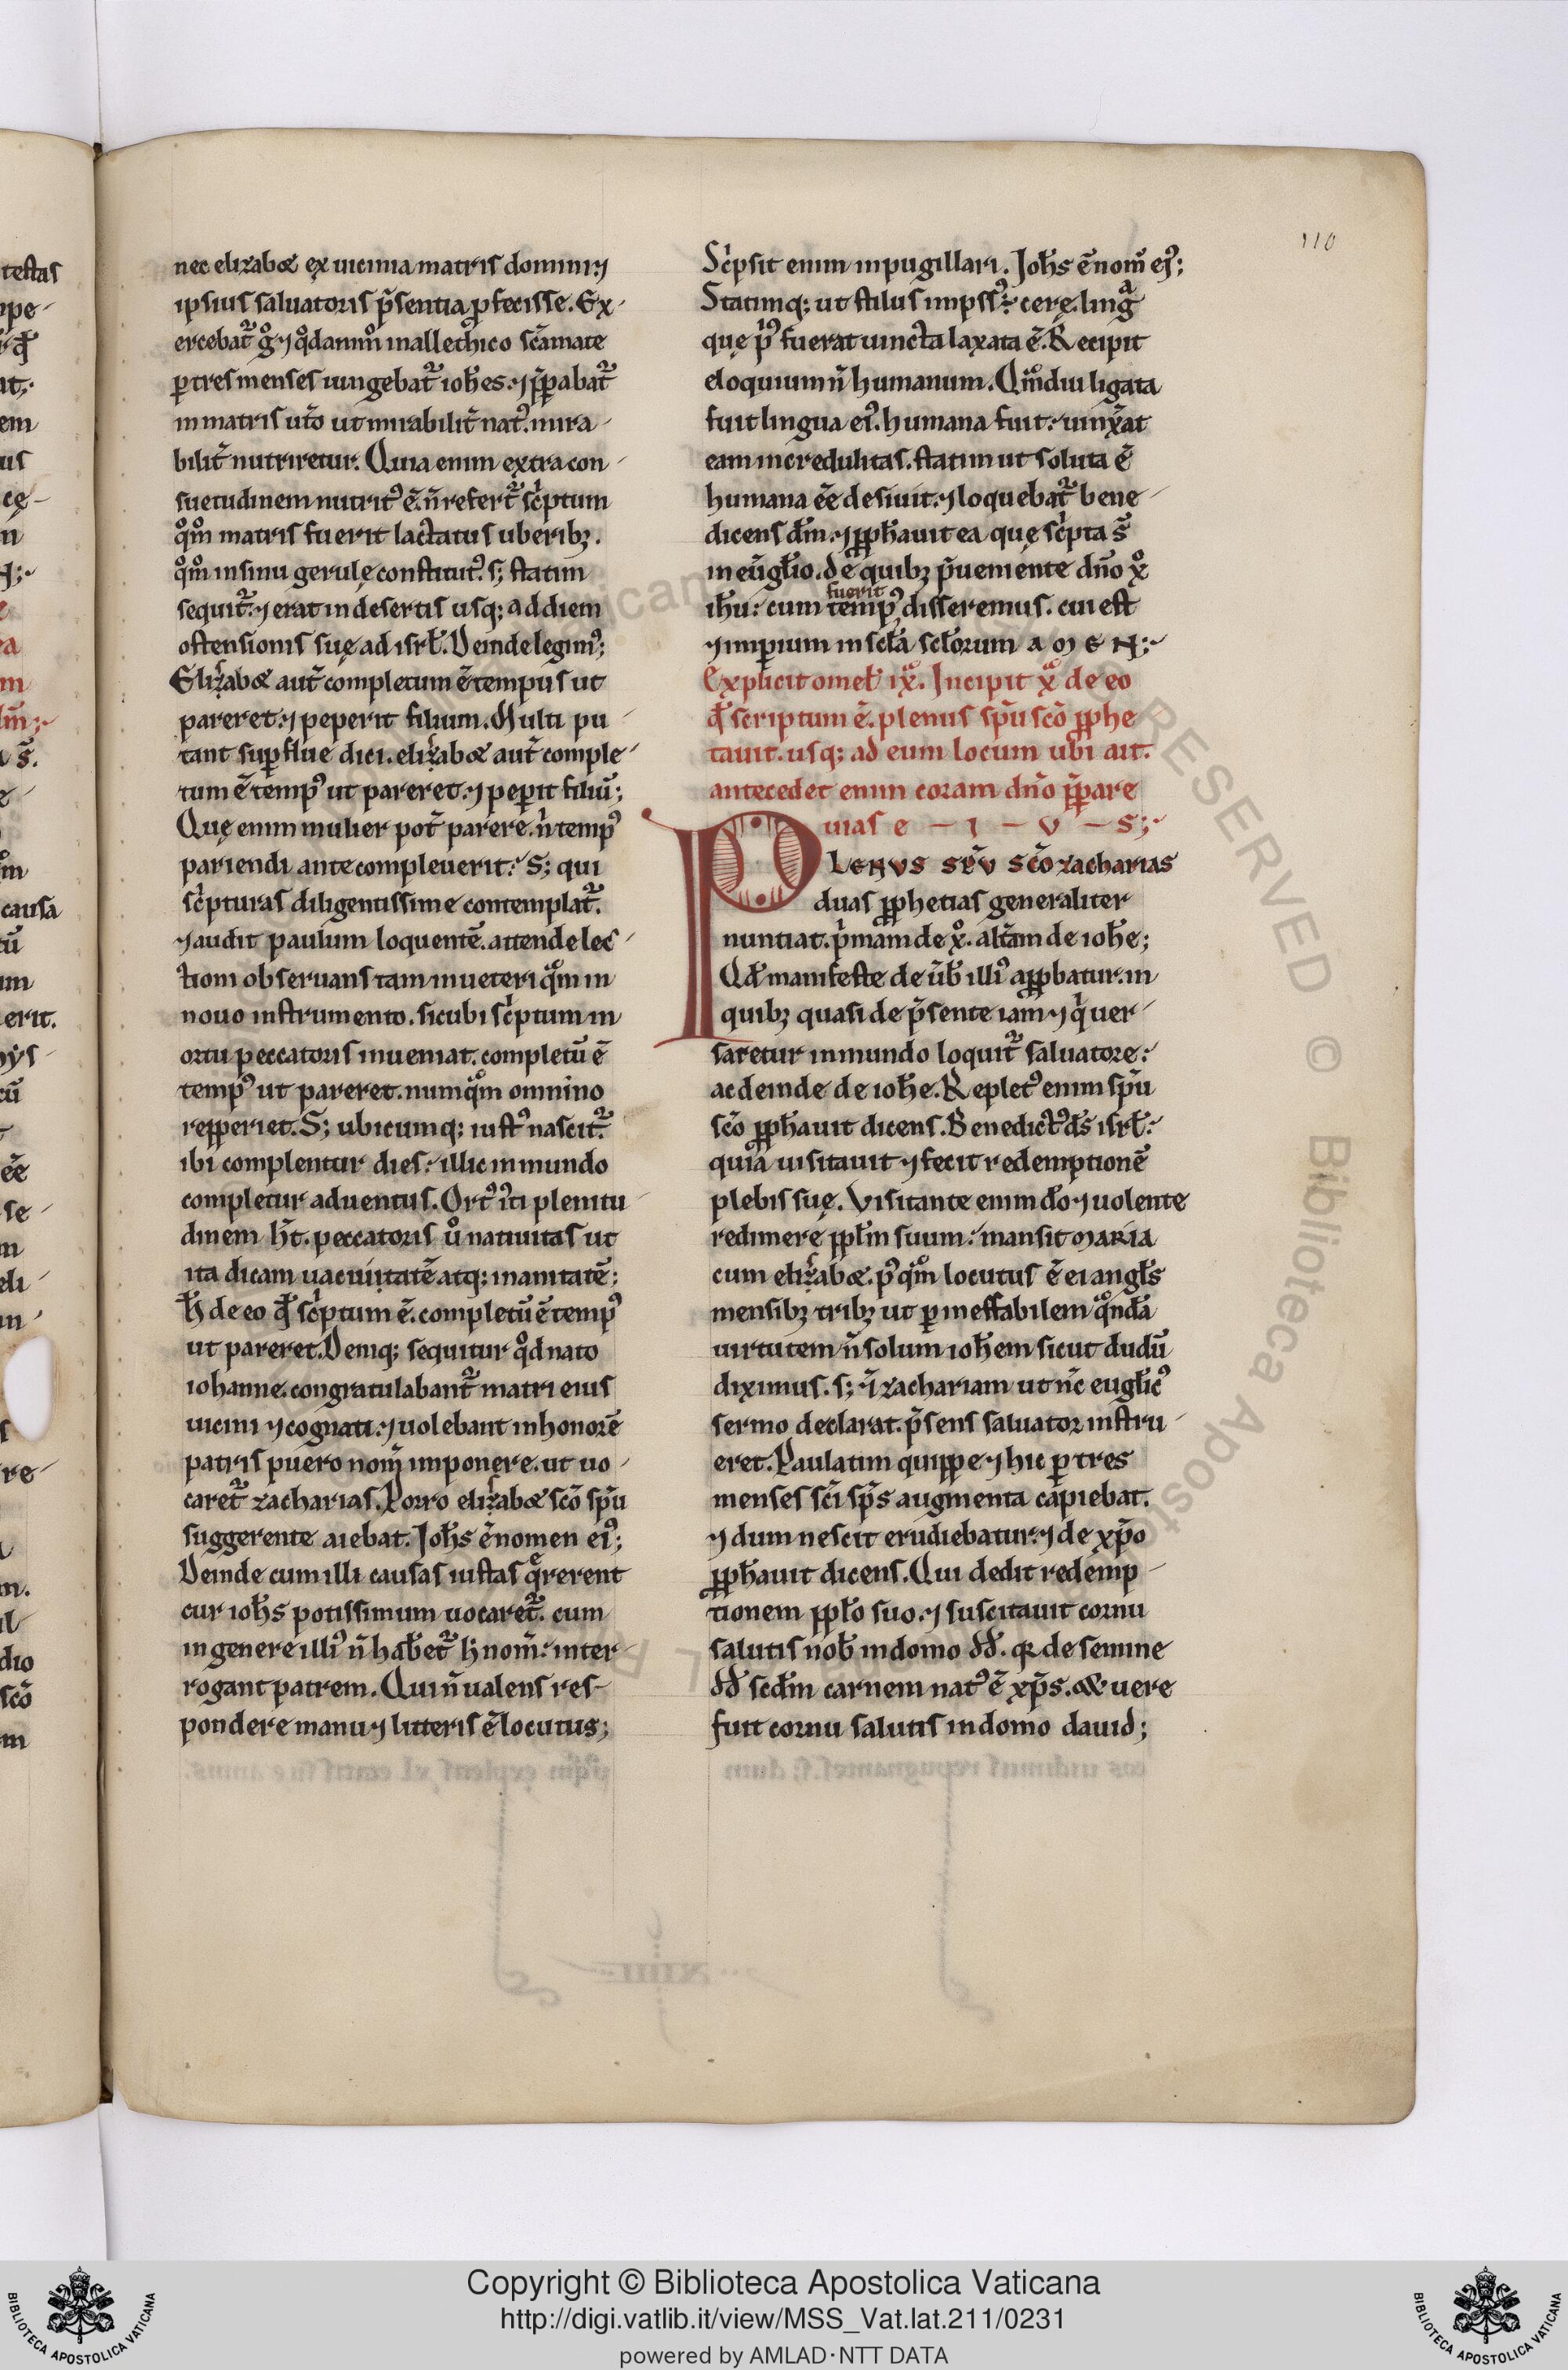 110
nec elizabꝫ ex uicinia matris domini ⁊
ipsius saluatoris p̄sentia ꝓfecisse. Ex-
ercebat᷑ gͦ ⁊ qͦdammͦ in allethico sc̄amate
ꝑ tres menses iungebat᷑ ioh̄es. ⁊ p̄ꝑabat᷑
in matris ut̄o ut mirabilit̄ natꝰ. mira-
bilit̄ nutriretur. Quia enim extra con-
suetudinem nutritꝰ ē. n̄ refert᷑ scͥptum
qͦmͦ matris fuerit lactatus uberibꝫ.
qͦmͦ in sinu gerulę constitutꝰ. sꝫ statim
sequit᷑. ⁊ erat in desertis usqꝫ ad diem
ostensionis suę ad isrł. Deinde legimꝰ;
Elizabꝫ aut̄ completum ē tempus ut
pareret. ⁊ peperit filium. Multi pu-
tant suꝑflue dici. elizabꝫ aut̄ comple-
tum ē tempꝰ ut pareret. ⁊ peꝑit filiū;
Quę enim mulier pot̄ parere. nͥ tempꝰ
pariendi ante compleuerit? Sꝫ qui
scͥpturas diligentissime contemplat᷑.
⁊ audit paulum loquentē. attende lec-
tioni obseruans tam in ueteri qͣm in
nouo instrumento. sicubi scͥptum in
ortu peccatoris inueniat. completū ē
tempꝰ ut pareret. numqͣm omnino
repperiet. Sꝫ ubicumqꝫ iustꝰ nascit᷑.
ibi complentur dies. illic in mundo
completur aduentus. Ortꝰ iͥti plenitu-
dinem h̄t. peccatoris uͦ natiuitas ut
ita dicam uacuiitatē atqꝫ inanitatē;
H̄ de eo qđ scͥptum ē. completū ē tempꝰ
ut pareret. Deniqꝫ sequitur qͦd nato
iohanne. congratulabant᷑ matri eius
uicini ⁊ cognati. ⁊ uolebant in honorē
patris puero nom̄ imponere. ut uo-
caret᷑ zacharias. Porro elizabꝫ sc̄o sp̄u
suggerente aiebat. Joh̄s ē nomen eiꝰ;
Deinde cum illi causas iustas qͣrerent
cur ioh̄s potissimum uocaret᷑. cum
in genere illiꝰ n̄ hab̄et᷑ h̄ nom̄. inter-
rogant patrem. Qui n̄ ualens res-
pondere manu ⁊ litteris ē locutus;
Scͥpsit enim in pugillari. Joh̄s ē nom̄ eiꝰ;
Statimqꝫ ut stilus imp̄ssꝰ ÷ cerę. lingͣ
quę pͥꝰ fuerat uincta laxata ē. Recipit
eloquium n̄ humanum. Qͣmdiu ligata
fuit lingua eiꝰ. humana fuit. uinx̄at
eam incredulitas. statim ut soluta ē
humana ēē desiuit. ⁊ loquebat᷑ bene-
dicens dm̄. ⁊ ꝓph̄auit ea quę scͥpta s̄
in eūgl̄io. de quibꝫ p̄ueniente dn̄o xͦ
ih̄u. cum tempꝰ fuerit disseremus. cui est
⁊ imꝑium in scl̄a scl̄orum AMEN;
Explicit omel̄ ix. Incipit xͣ de eo
qđ scriptum ē. plenus sp̄u sc̄o ꝓphe
tauit. usqꝫ ad eum locum ubi ait.
antecedet enim coram dn̄o p̄ꝑare
uias e — I — V — S;
PLENVS SP̄V SC̄O zacharias
duas ꝓphetias generaliter
nuntiat. pͥmam de xͦ. alt̄am de ioh̄e;
Qđ manifeste de ūb̄ illiꝰ apꝓbatur. in
quibꝫ quasi de p̄sente iam ⁊ qͥ uer-
saretur in mundo loquit᷑ saluatore.
ac deinde de ioh̄e. Repletꝰ enim sp̄u
sc̄o ꝓph̄auit dicens. Benedictꝰ d̄s isrł.
quia uisitauit ⁊ fecit redemptionē
plebis suę. Visitante enim dō ⁊ uolente
redimere ppl̄m suum. mansit MARIA
cum elizabꝫ. pꝰqͣm locutus ē ei angl̄s
mensibꝫ tribꝫ ut ꝑ ineffabilem qͣndā
uirtutem n̄ solum ioh̄em sicut dudū
diximus. sꝫ ⁊ zachariam ut nc̄ eugl̄icꝰ
sermo declarat. p̄sens saluator instru-
eret. Paulatim quippe ⁊ hic ꝑ tres
menses sc̄i sp̄s augmenta capiebat.
⁊ dum nescit erudiebatur. ⁊ de xp̄o
ꝓph̄auit dicens. Qui dedit redemp-
tionem ppl̄o suo. ⁊ suscitauit cornu
salutis nob̄ in domo dd̄. qꝛ de semine
dd̄ scd̄m carnem natꝰ ē xp̄s. & uere
fuit cornu salutis in domo dauid;
Copyright © Biblioteca Apostolica Vaticana
http://digi.vatlib.it/view/MSS_Vat.lat.211/0231
powered by AMLAD·NTT DATA
BIBLIOTECA APOSTOLICA VATICANA
BIBLIOTECA APOSTOLICA VATICANA